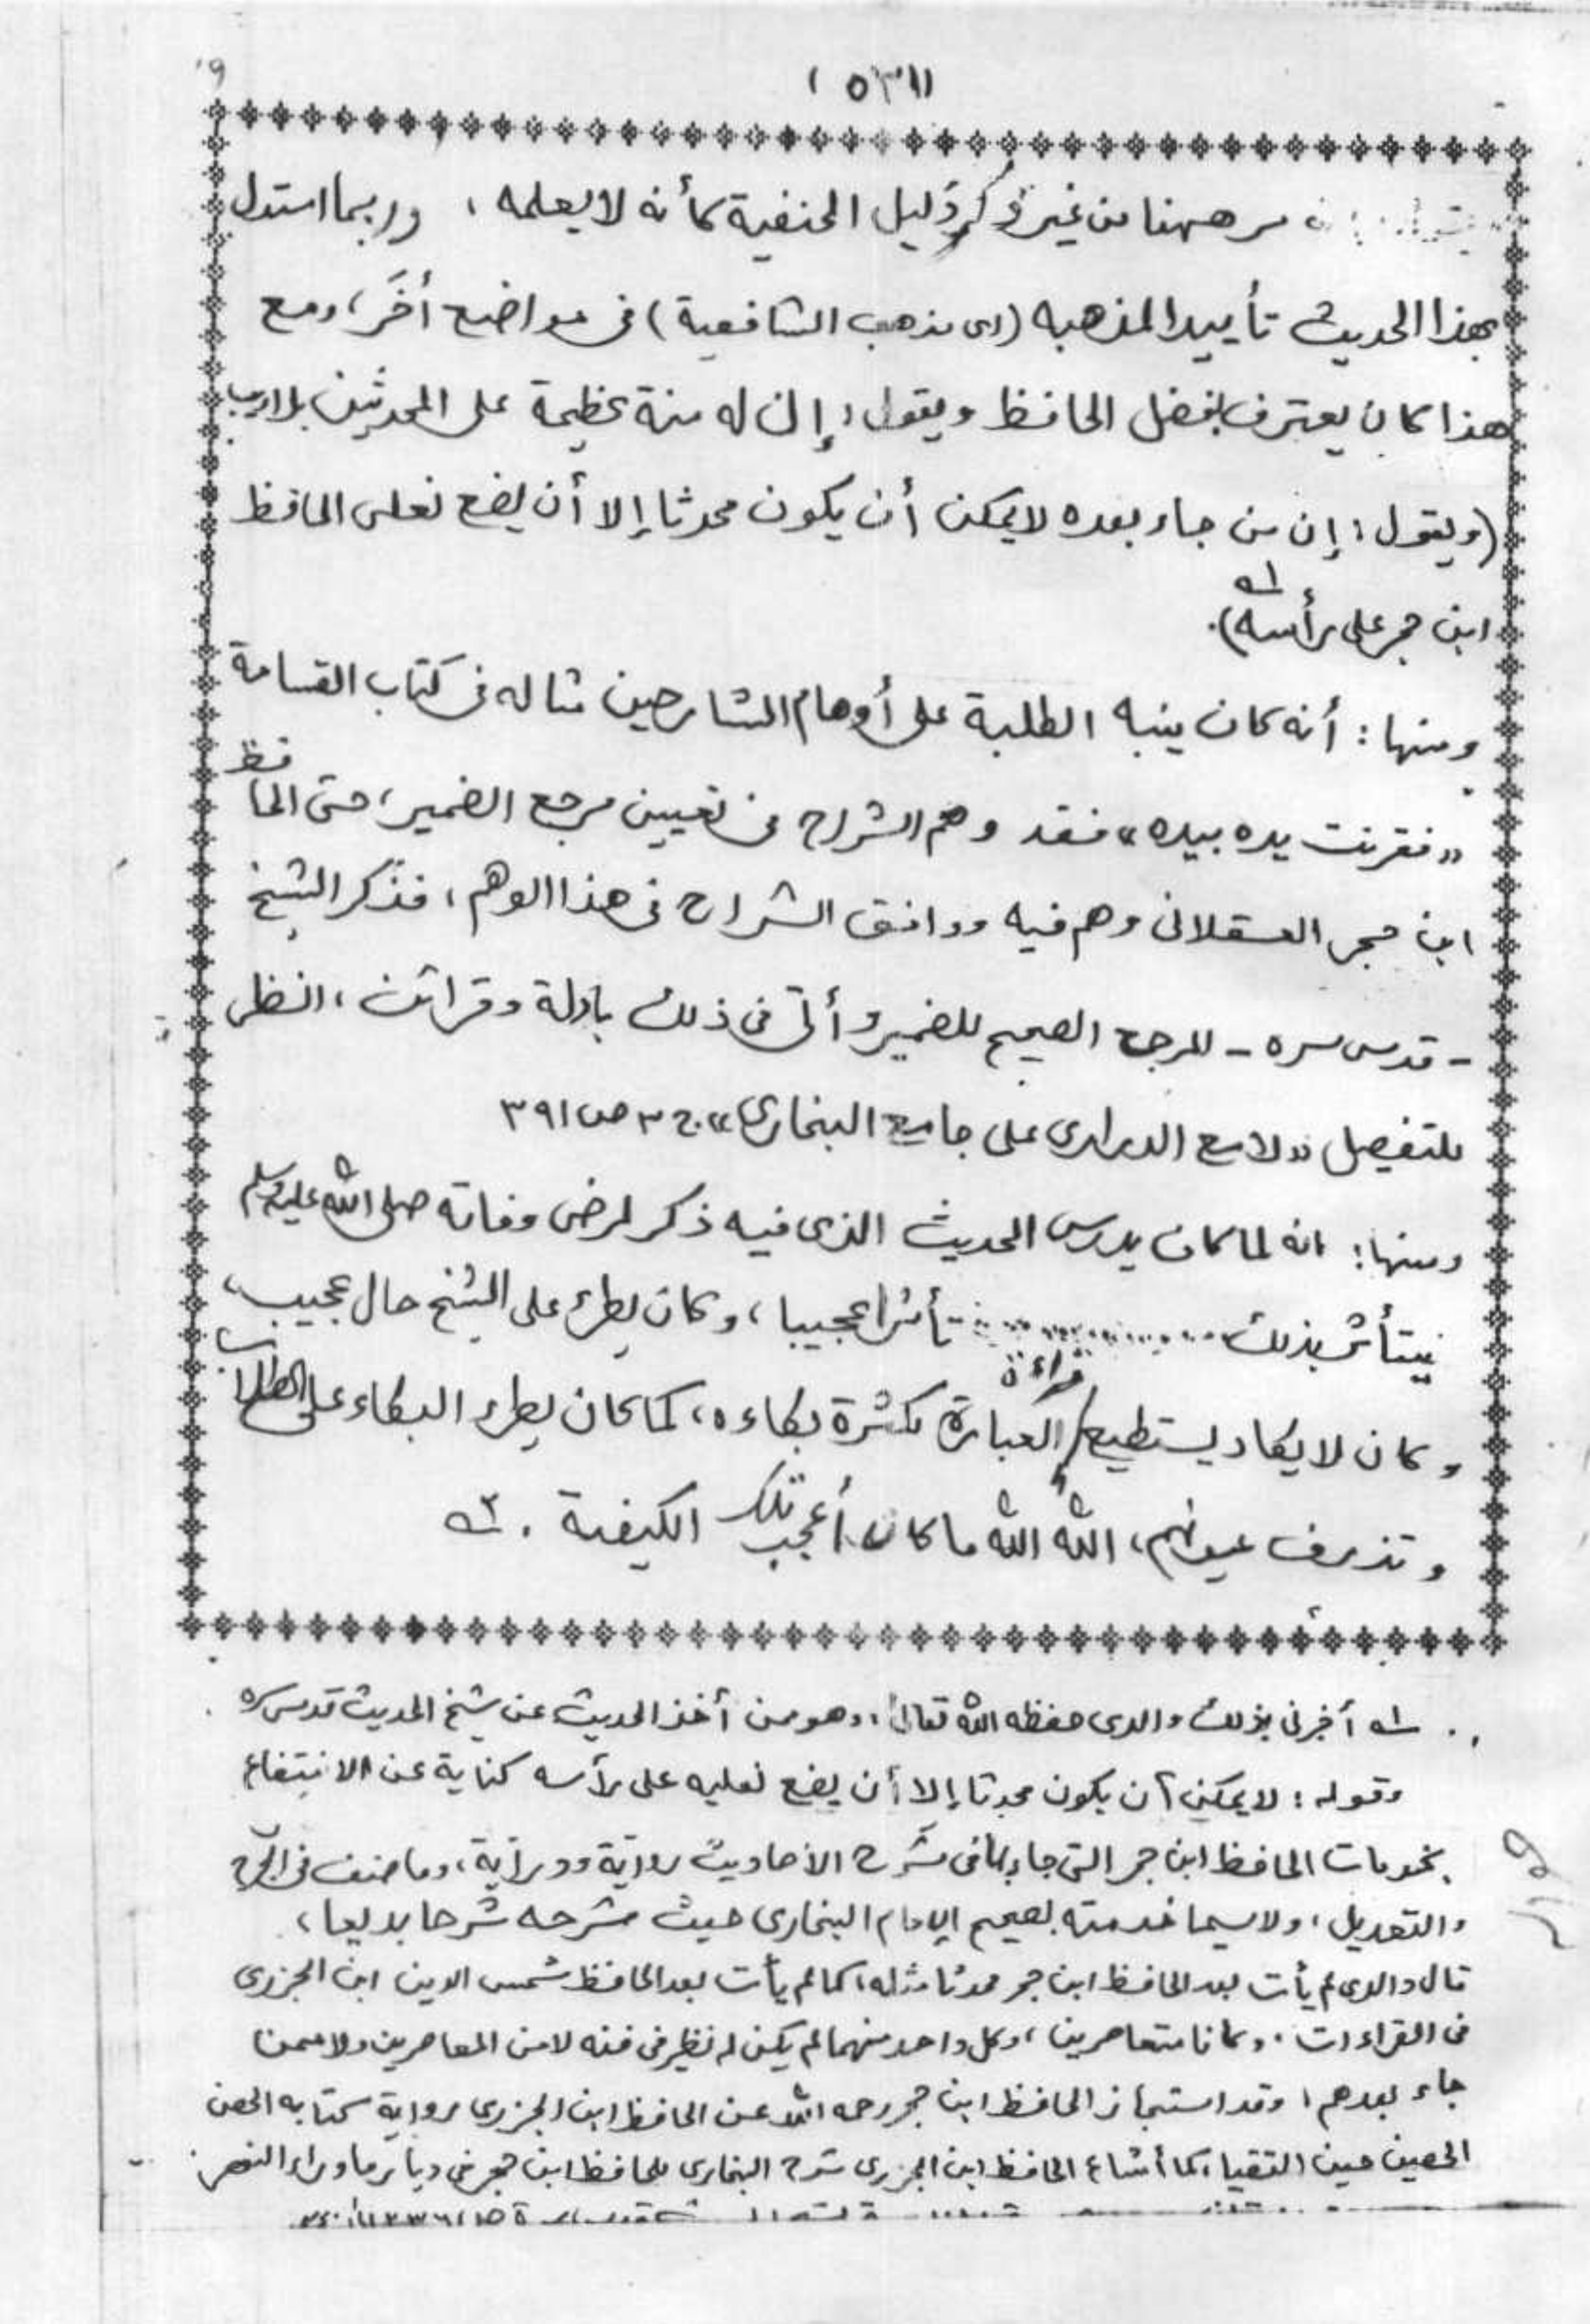 (٥٣١)
ههنا من غير ذكر دليل الحنفية كأنه لا يعلمه ، وربما استدل
بهذا الحديث تأييدا لمذهبه (اى مذهب الشافعية) فى مواضع أخَر ، ومع
هذا كان يعترف بفضل الحافظ ويقول : إن له منة عظيمة على المحدثين بلا ريب
(ويقول : إن من جاء بعده لا يمكن أن يكون محدثا إلا أن يضع نعلى الحافظ
ابن حجر على رأسه) ١ـه.
ومنها : أنه كان ينبه الطلبة على أوهام الشارحين مثاله فى كتاب القسامة
«فقرنت يده بيده» فقد وهم الشراح فى تعيين مرجع الضمير ، حتى الحافظ
ابن حجر العسقلانى وهم فيه ووافق الشراح فى هذا الوهم ، فذكر الشيخ
- قدس سره - المرجع الصحيح للضمير وأتى فى ذلك بادلة وقرائن ، انظر
للتفصيل «لامع الدرارى على جامع البخارى» ج ٣ ص ٣٩١
ومنها : انه لما كان يدرس الحديث الذى فيه ذكر لمرض وفاته صلى الله عليه وسلم
يتأثر بذلك تأثرا عجيبا ، وكان يطرء على الشيخ حال عجيب ،
وكان لا يكاد يستطيع قراءة العبارة لكثرة بكاءه ، كما كان يطرء البكاء على الطلاب
وتذرف عيونهم ، الله الله ما كان أعجب تلك الكيفية . ٢ـه
١ـه أخبرنى بذلك والدى حفظه الله تعالى ، وهو من أخذ الحديث عن شيخ الحديث قدس سره
وقوله : لا يمكن أن يكون محدثا إلا أن يضع نعليه على رأسه كناية عن الانتفاع
بخدمات الحافظ ابن حجر التى جاء بها فى شرح الأحاديث رواية ودراية ، وما صنف فى الجرح
والتعديل ، ولا سيما خدمته لصحيح الإمام البخارى حيث شرحه شرحا بديعا ،
قال والدى لم يأت بعد الحافظ ابن حجر محدثا مثله ، كما لم يأت بعد الحافظ شمس الدين ابن الجزرى
فى القراءات . وكانا متعاصرين ، وكل واحد منهما لم يكن له نظير فى فنه لا من المعاصرين ولا ممن
جاء بعدهم ، وقد استجاز الحافظ ابن حجر رحمه الله عن الحافظ ابن الجزرى رواية كتابه الحصن
الحصين حين التقيا ، كما أشاع الحافظ ابن الجزرى شرح البخارى للحافظ ابن حجر فى ديار ما وراء النهر .